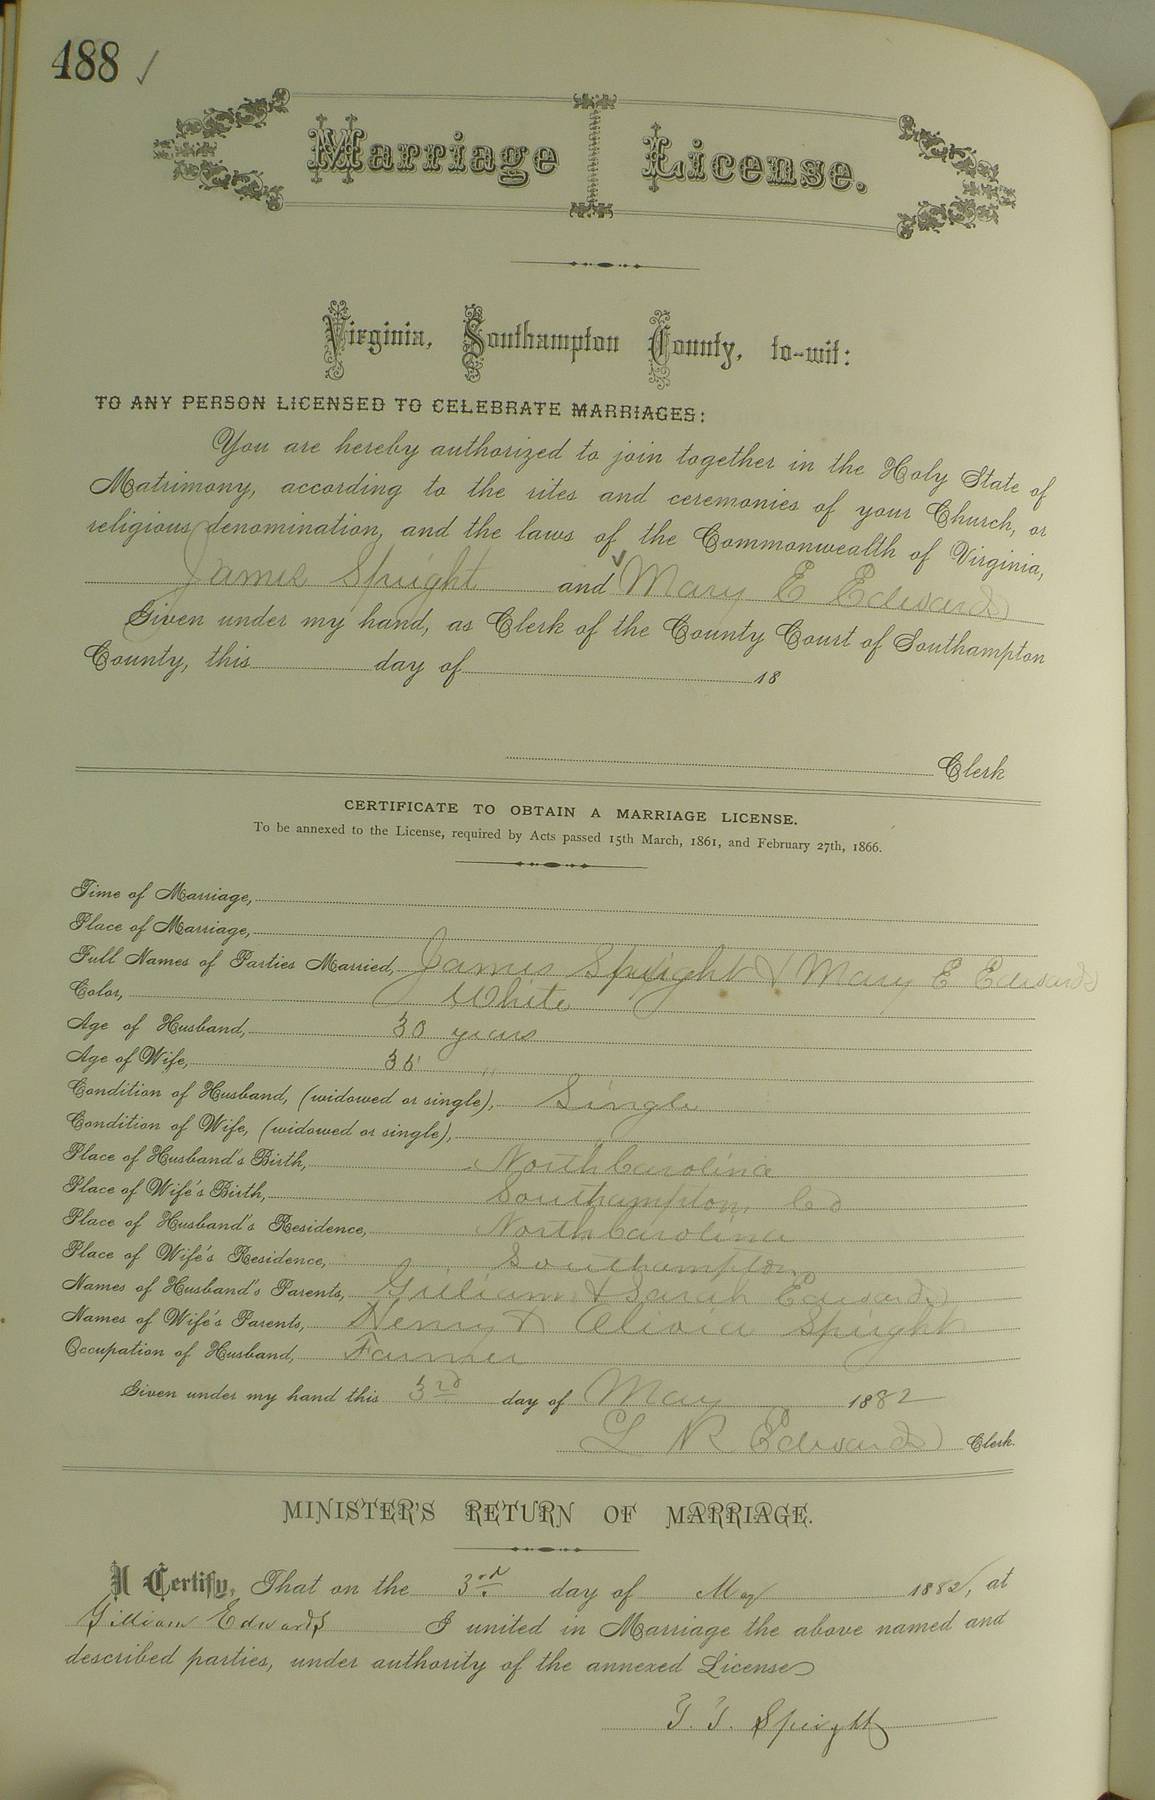 488 ✓
Marriage License.
Virginia, Southampton County, to-wit:
TO ANY PERSON LICENSED TO CELEBRATE MARRIAGES:
You are hereby authorized to join together in the Holy State of
Matrimony, according to the rites and ceremonies of your Church, or
religious denomination, and the laws of the Commonwealth of Virginia,
James Spight and Mary E Edwards
Given under my hand, as Clerk of the County Court of Southampton
County, this day of 18
Clerk
CERTIFICATE TO OBTAIN A MARRIAGE LICENSE.
To be annexed to the License, required by Acts passed 15th March, 1861, and February 27th, 1866.
Time of Marriage,
Place of Marriage,
Full Names of Parties Married, James Spight & Mary E Edwards
Color, White
Age of Husband, 30 years
Age of Wife, 35 "
Condition of Husband, (widowed or single), Single
Condition of Wife, (widowed or single),
Place of Husband's Birth, North Carolina
Place of Wife's Birth, Southampton, Co
Place of Husband's Residence, North Carolina
Place of Wife's Residence, Southampton
Names of Husband's Parents, Gilliam & Sarah Edwards
Names of Wife's Parents, Henry & Olivia Spight
Occupation of Husband, Farmer
Given under my hand this 3rd day of May 1882
L R Edwards Clerk.
MINISTER'S RETURN OF MARRIAGE.
I Certify, That on the 3rd day of May 1882, at
Gilliam Edwards I united in Marriage the above named and
described parties, under authority of the annexed License
T. T. Speight